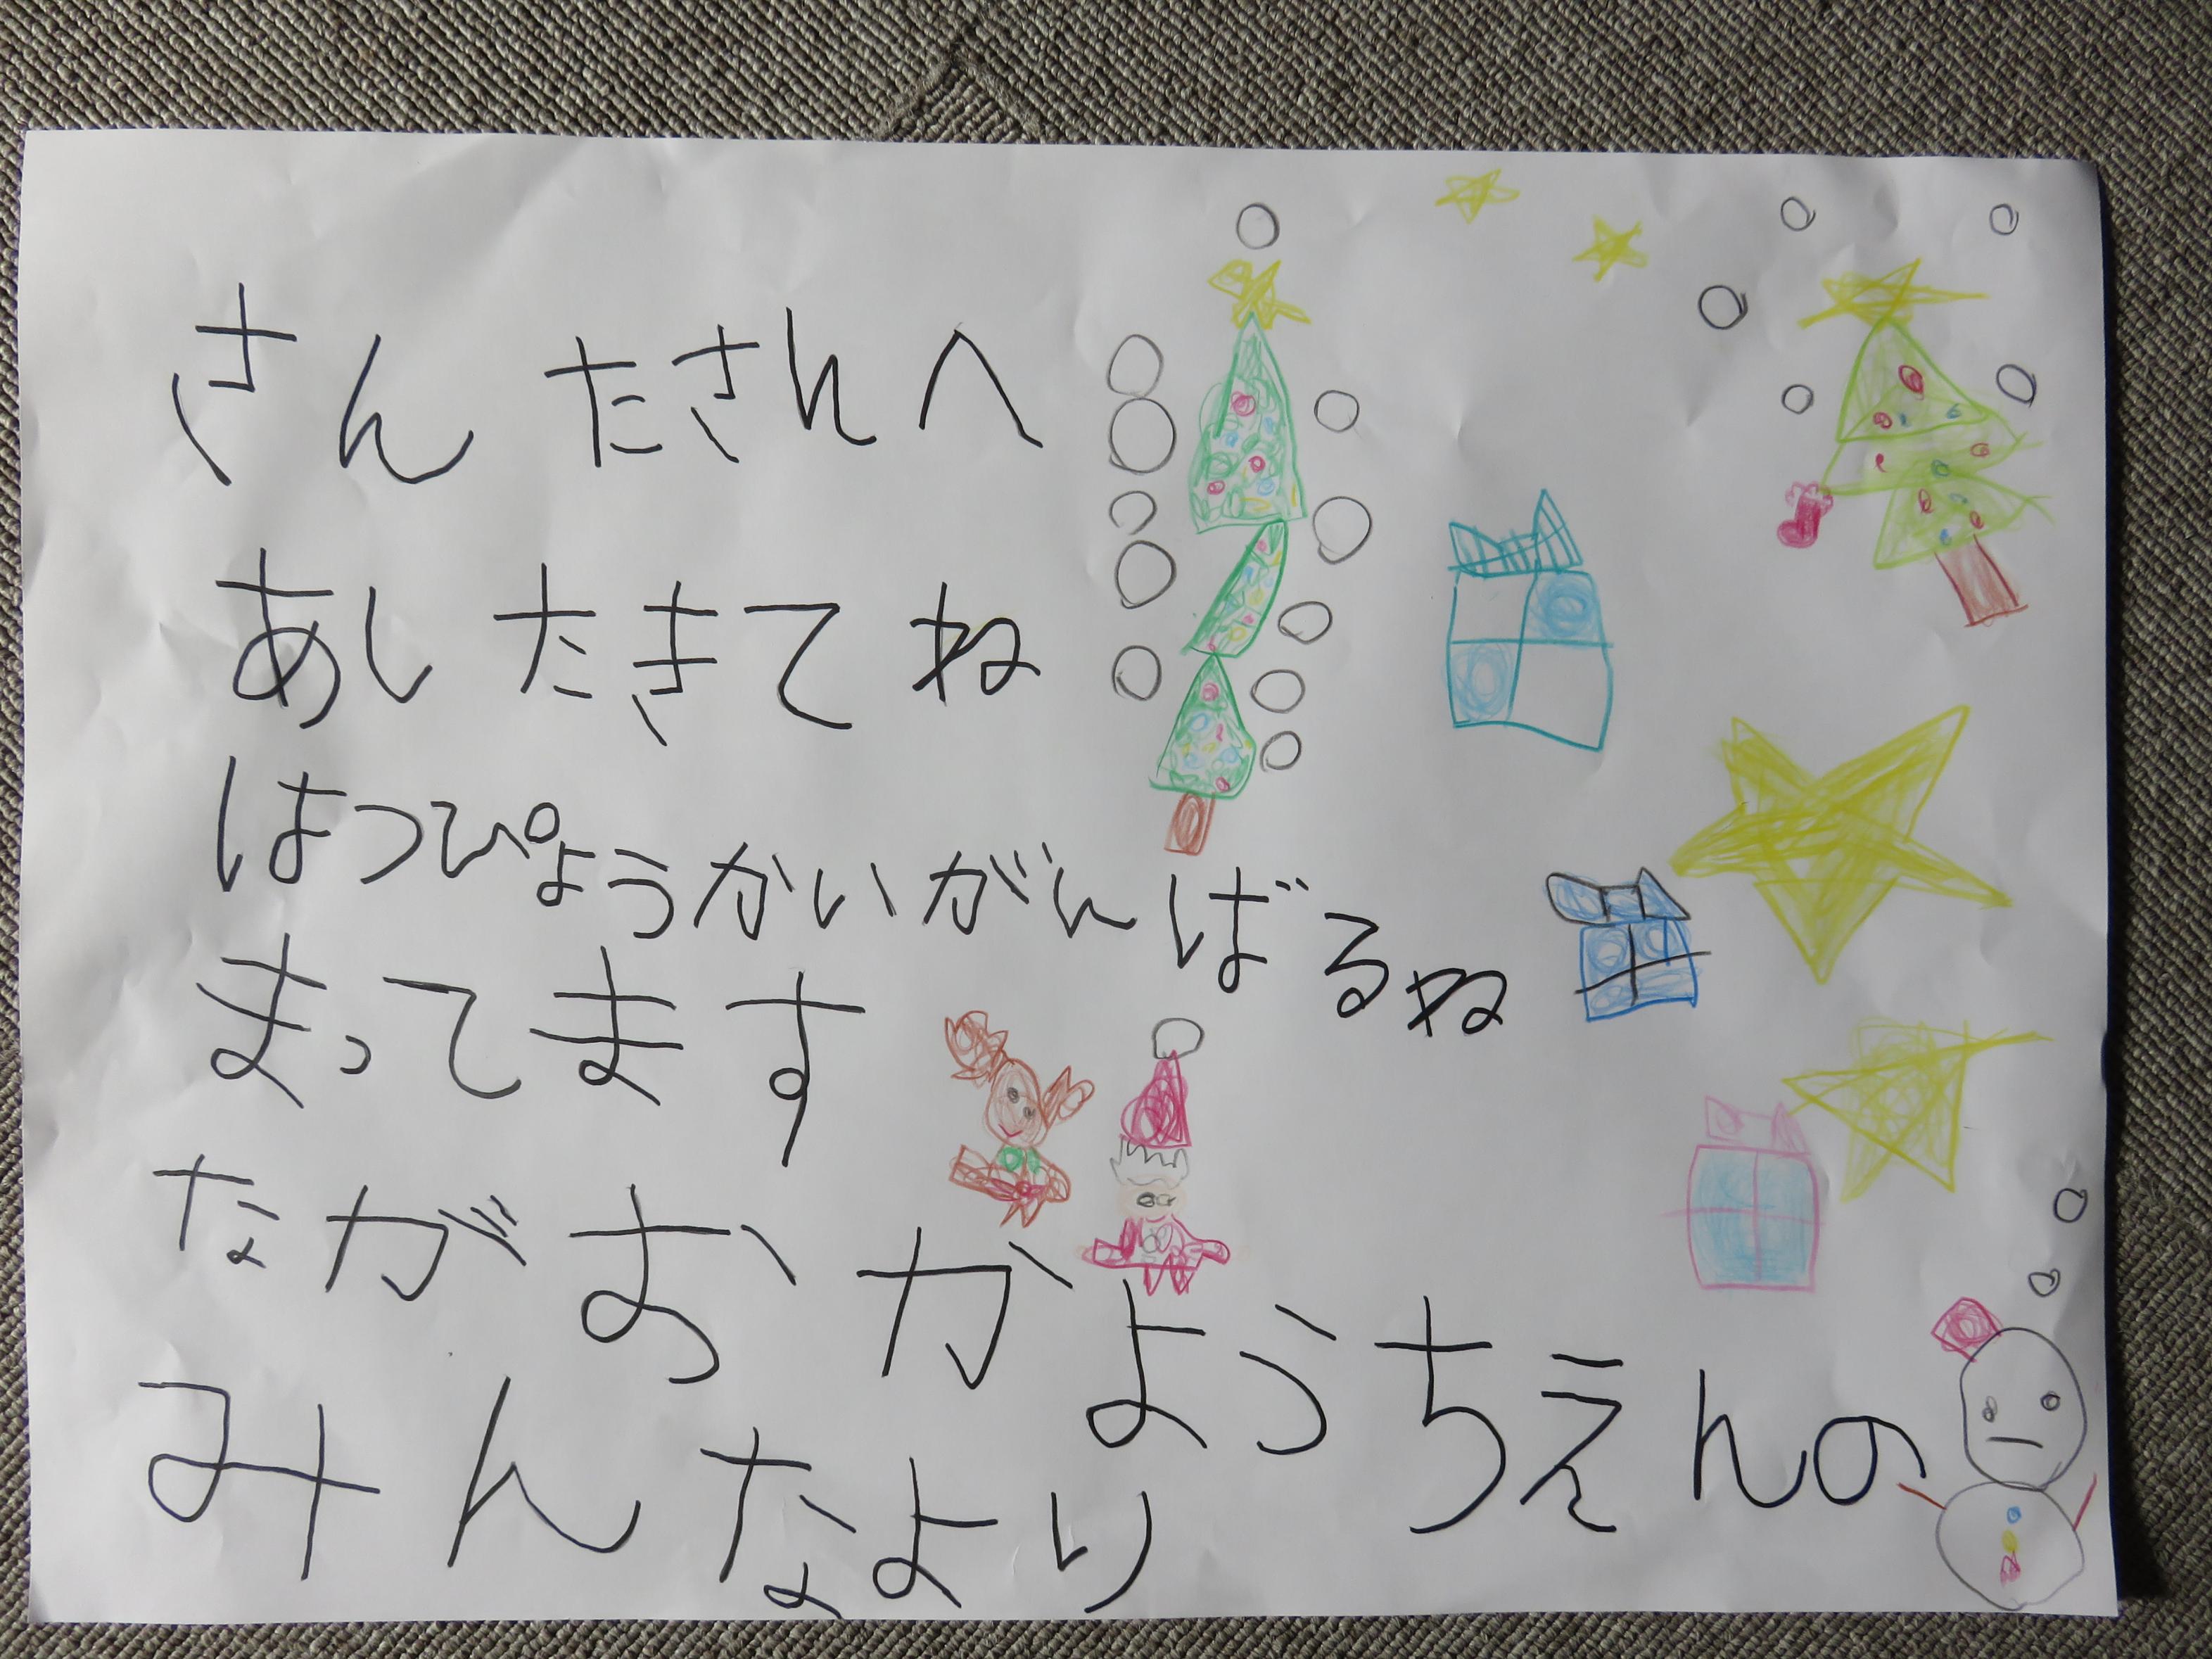 さんたさんへ
あしたきてね
はつぴょうかいがんばるね
まってます
ながおかようちえんの
みんなより